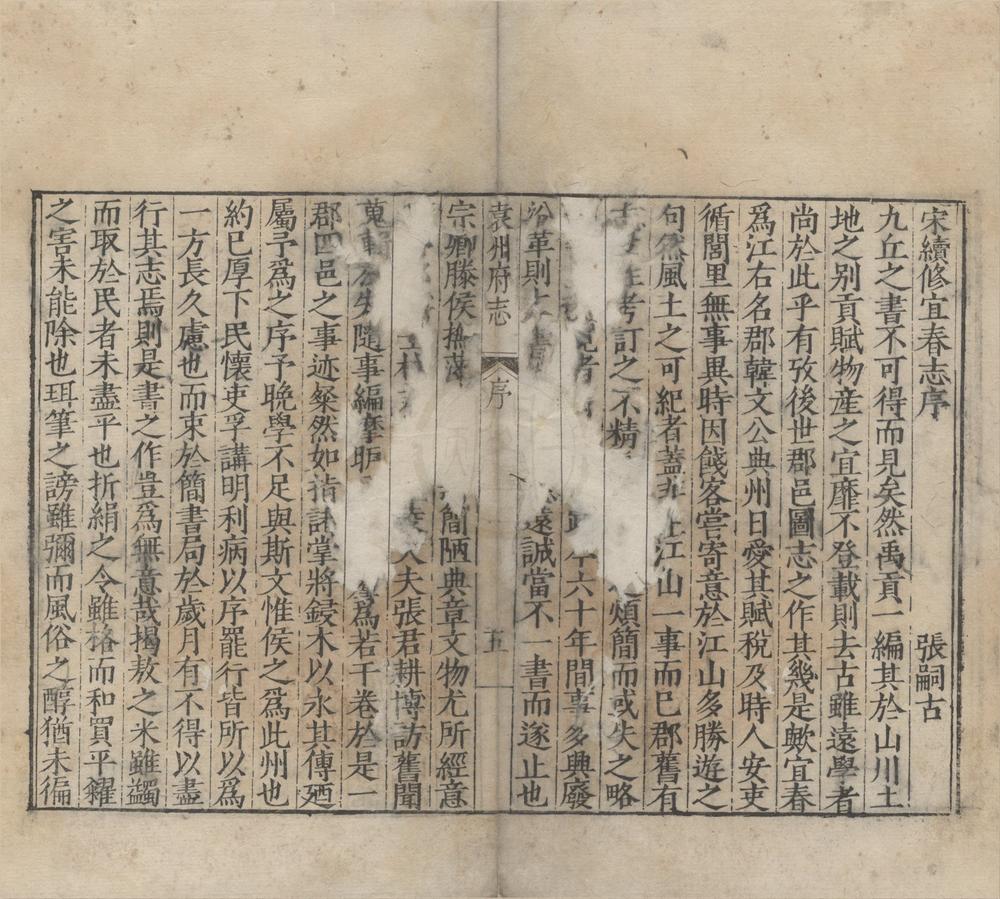 宋續修宜春志序
張嗣古
九丘之書不可得而見矣然禹貢一編其於山川土
地之别貢賦物産之宜靡不登載則去古雖遠學者
尚於此乎有攷後世郡邑圖志之作其幾是歟宜春
爲江右名郡韓文公典州日愛其賦税及時人安吏
循閭里無事異時因餞客嘗寄意於江山多勝遊之
句然風土之可紀者蓋非江山一事而已郡舊有
考訂之不精煩簡而或失之略
者六十年間事多興廢
沿革則遠誠當不一書而遂止也
袁州府志
序
五
宗卿滕侯簡陋典章文物尤所經意
夫張君耕博訪舊聞
蒐輯隨事編摩爲若干卷於是一
郡四邑之事迹粲然如指諸掌將鋟木以永其傳廼
屬予爲之序予晩學不足與斯文惟侯之爲此州也
約已厚下民懷吏孚講明利病以序罷行皆所以爲
一方長久慮也而束於簡書局於歲月有不得以盡
行其志焉則是書之作豈爲無意哉掲敖之米雖蠲
而取於民者未盡平也折絹之令雖格而和買平糴
之害未能除也珥筆之謗雖彌而風俗之醇猶未徧